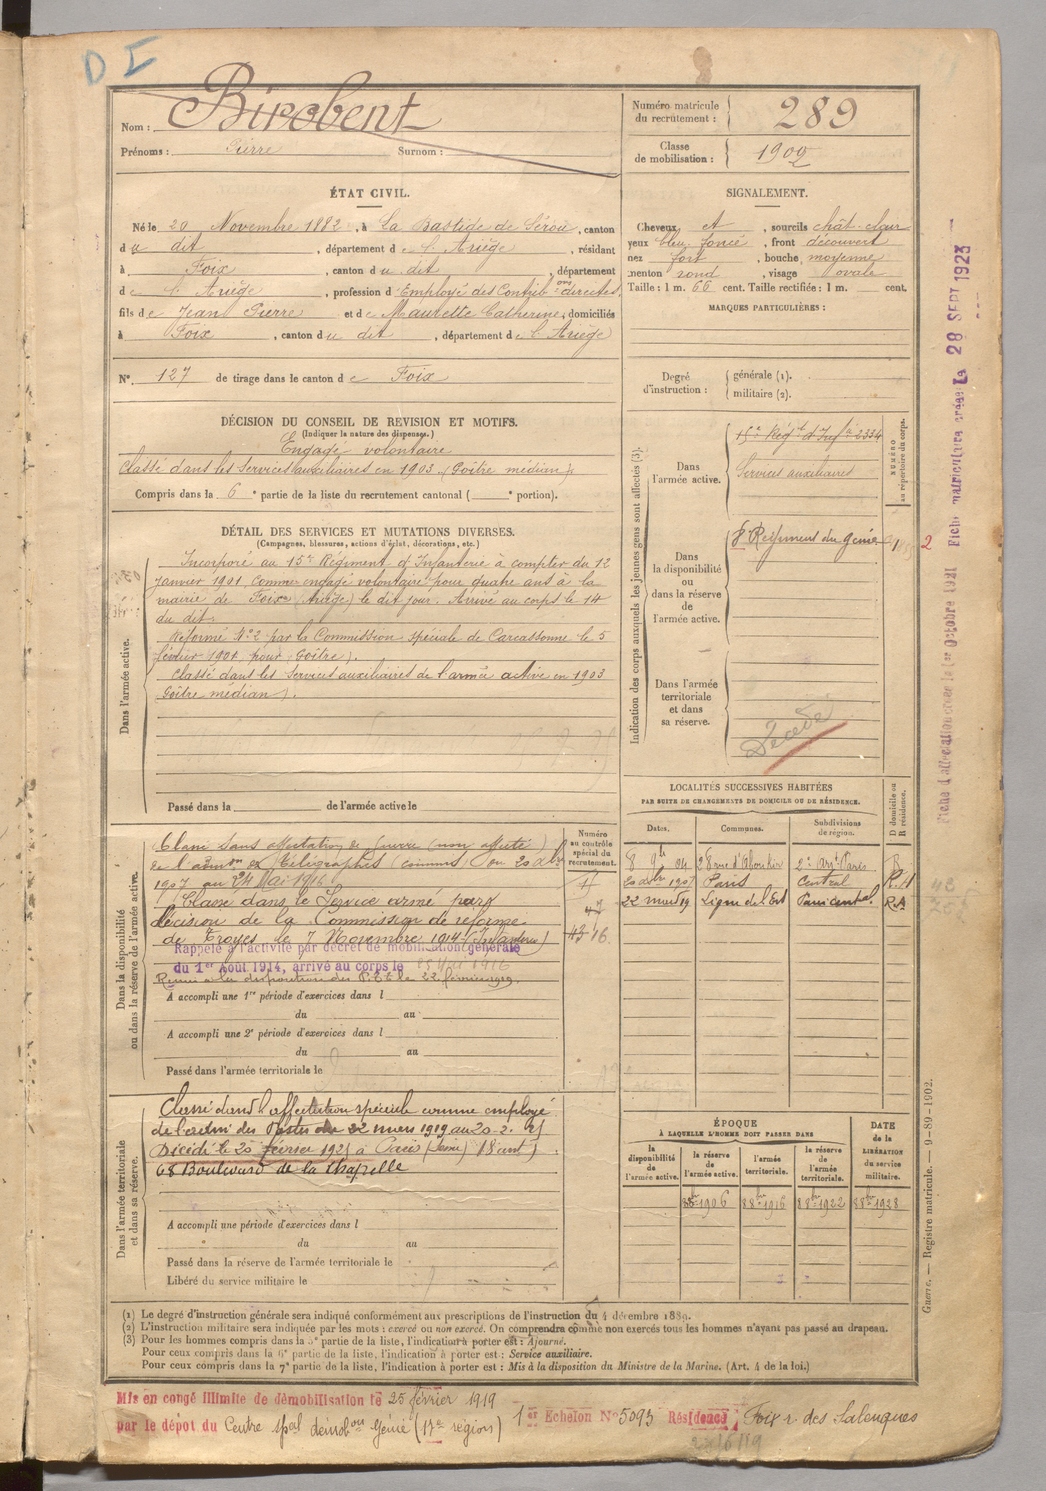 D I
Nom : Birobent
Prénoms : Pierre Surnom :
Numéro matricule du recrutement : 289
Classe de mobilisation : 1902
ÉTAT CIVIL.
Né le 20 Novembre 1882, à La Bastide de Sérou, canton
du dit, département de l'Ariège, résidant
à Foix, canton du dit, département
de l'Ariège, profession d'Employé des Contrib ons directes,
fils de Jean Pierre et de Maurette Catherine, domiciliés
à Foix, canton du dit, département de l'Ariège
N° 127 de tirage dans le canton de Foix
SIGNALEMENT.
Cheveux et, sourcils chât-clair
yeux bleu foncé, front découvert
nez fort, bouche moyenne
menton rond, visage ovale
Taille : 1 m. 66 cent. Taille rectifiée : 1 m. cent.
MARQUES PARTICULIÈRES :
Degré d'instruction : générale (1).
militaire (2).
DÉCISION DU CONSEIL DE REVISION ET MOTIFS.
(Indiquer la nature des dispenses.)
Engagé volontaire
Classé dans les Services auxiliaires en 1903 (Goître médian).
Compris dans la 6e partie de la liste du recrutement cantonal ( e portion).
DÉTAIL DES SERVICES ET MUTATIONS DIVERSES.
(Campagnes, blessures, actions d'éclat, décorations, etc.)
Dans l'armée active.
Incorporé au 15e Régiment d'Infanterie à compter du 12
janvier 1901 comme engagé volontaire pour quatre ans à la
mairie de Foix (Ariège) le dit jour. Arrivé au corps le 14
du dit.
Réformé N° 2 par la Commission spéciale de Carcassonne le 5
février 1901 pour (Goître).
Classé dans les Services auxiliaires de l'armée active en 1903
Goître médian).
Passé dans la de l'armée active le
Indication des corps auxquels les jeunes gens sont affectés (3).
Dans l'armée active.
15e Régt d'Infie 2334
Services auxiliaires
NUMÉRO au répertoire du corps.
Dans la disponibilité ou dans la réserve de l'armée active.
8e Régiment du génie
2
Dans l'armée territoriale et dans sa réserve.
Décédé
LOCALITÉS SUCCESSIVES HABITÉES
PAR SUITE DE CHANGEMENTS DE DOMICILE OU DE RÉSIDENCE.
Dates. Communes. Subdivisions de région. D domicile ou R résidence.
8 9bre 04 28 rue d'Aboukir 2e arrt Paris R
20 xbre 1907 Paris Central R.A
22 mars 19 Ligne de l'Est Paris central R.A
Dans la disponibilité ou dans la réserve de l'armée active.
Numéro au contrôle spécial du recrutement.
Classé sans affectation de guerre (non affecté)
de l'admon des Télégraphes (commis) du 20 xbre
1907 au 24 Mai 1916
Classé dans le Service armé par
décision de la Commission de réforme
de Troyes le 7 Novembre 1914 (Infanterie)
43 16
Rappelé à l'activité par décret de mobilisation générale
du 1er Août 1914, arrivé au corps le 25 Mai 1916
Remis à la disposition des P.T.T. le 22 février 1919.
A accompli une 1re période d'exercices dans l
du au
A accompli une 2e période d'exercices dans l
du au
Passé dans l'armée territoriale le
Dans l'armée territoriale et dans sa réserve.
Classé dans l'affectation spéciale comme employé
de l'admi des Postes du 22 mars 1919 au 20-2-25
Décédé le 20 février 1925 à Paris (Seine) 18 arrt)
68 Boulevard de la Chapelle
A accompli une période d'exercices dans l
du au
Passé dans la réserve de l'armée territoriale le
Libéré du service militaire le
ÉPOQUE
À LAQUELLE L'HOMME DOIT PASSER DANS
la disponibilité de l'armée active. la réserve de l'armée active. l'armée territoriale. la réserve de l'armée territoriale.
DATE de la LIBÉRATION du service militaire.
8bre 1906 8bre 1916 8bre 1922 8bre 1928
(1) Le degré d'instruction générale sera indiqué conformément aux prescriptions de l'instruction du 4 décembre 1889.
(2) L'instruction militaire sera indiquée par les mots : exercé ou non exercé. On comprendra comme non exercés tous les hommes n'ayant pas passé au drapeau.
(3) Pour les hommes compris dans la 5e partie de la liste, l'indication à porter est : Ajourné.
Pour ceux compris dans la 6e partie de la liste, l'indication à porter est : Service auxiliaire.
Pour ceux compris dans la 7e partie de la liste, l'indication à porter est : Mis à la disposition du Ministre de la Marine. (Art. 4 de la loi.)
Mis en congé illimité de démobilisation le 25 février 1919
par le dépôt du Centre spal démobon Génie (17e région) 1er Echelon N° 5093 Résidence Foix r. des Salenques
Fiche d'affectation créée le 1er Octobre 1921 Fiche matriculaire créée le 28 SEPT 1923
Guerre. — Registre matricule. — 9-89-1902.